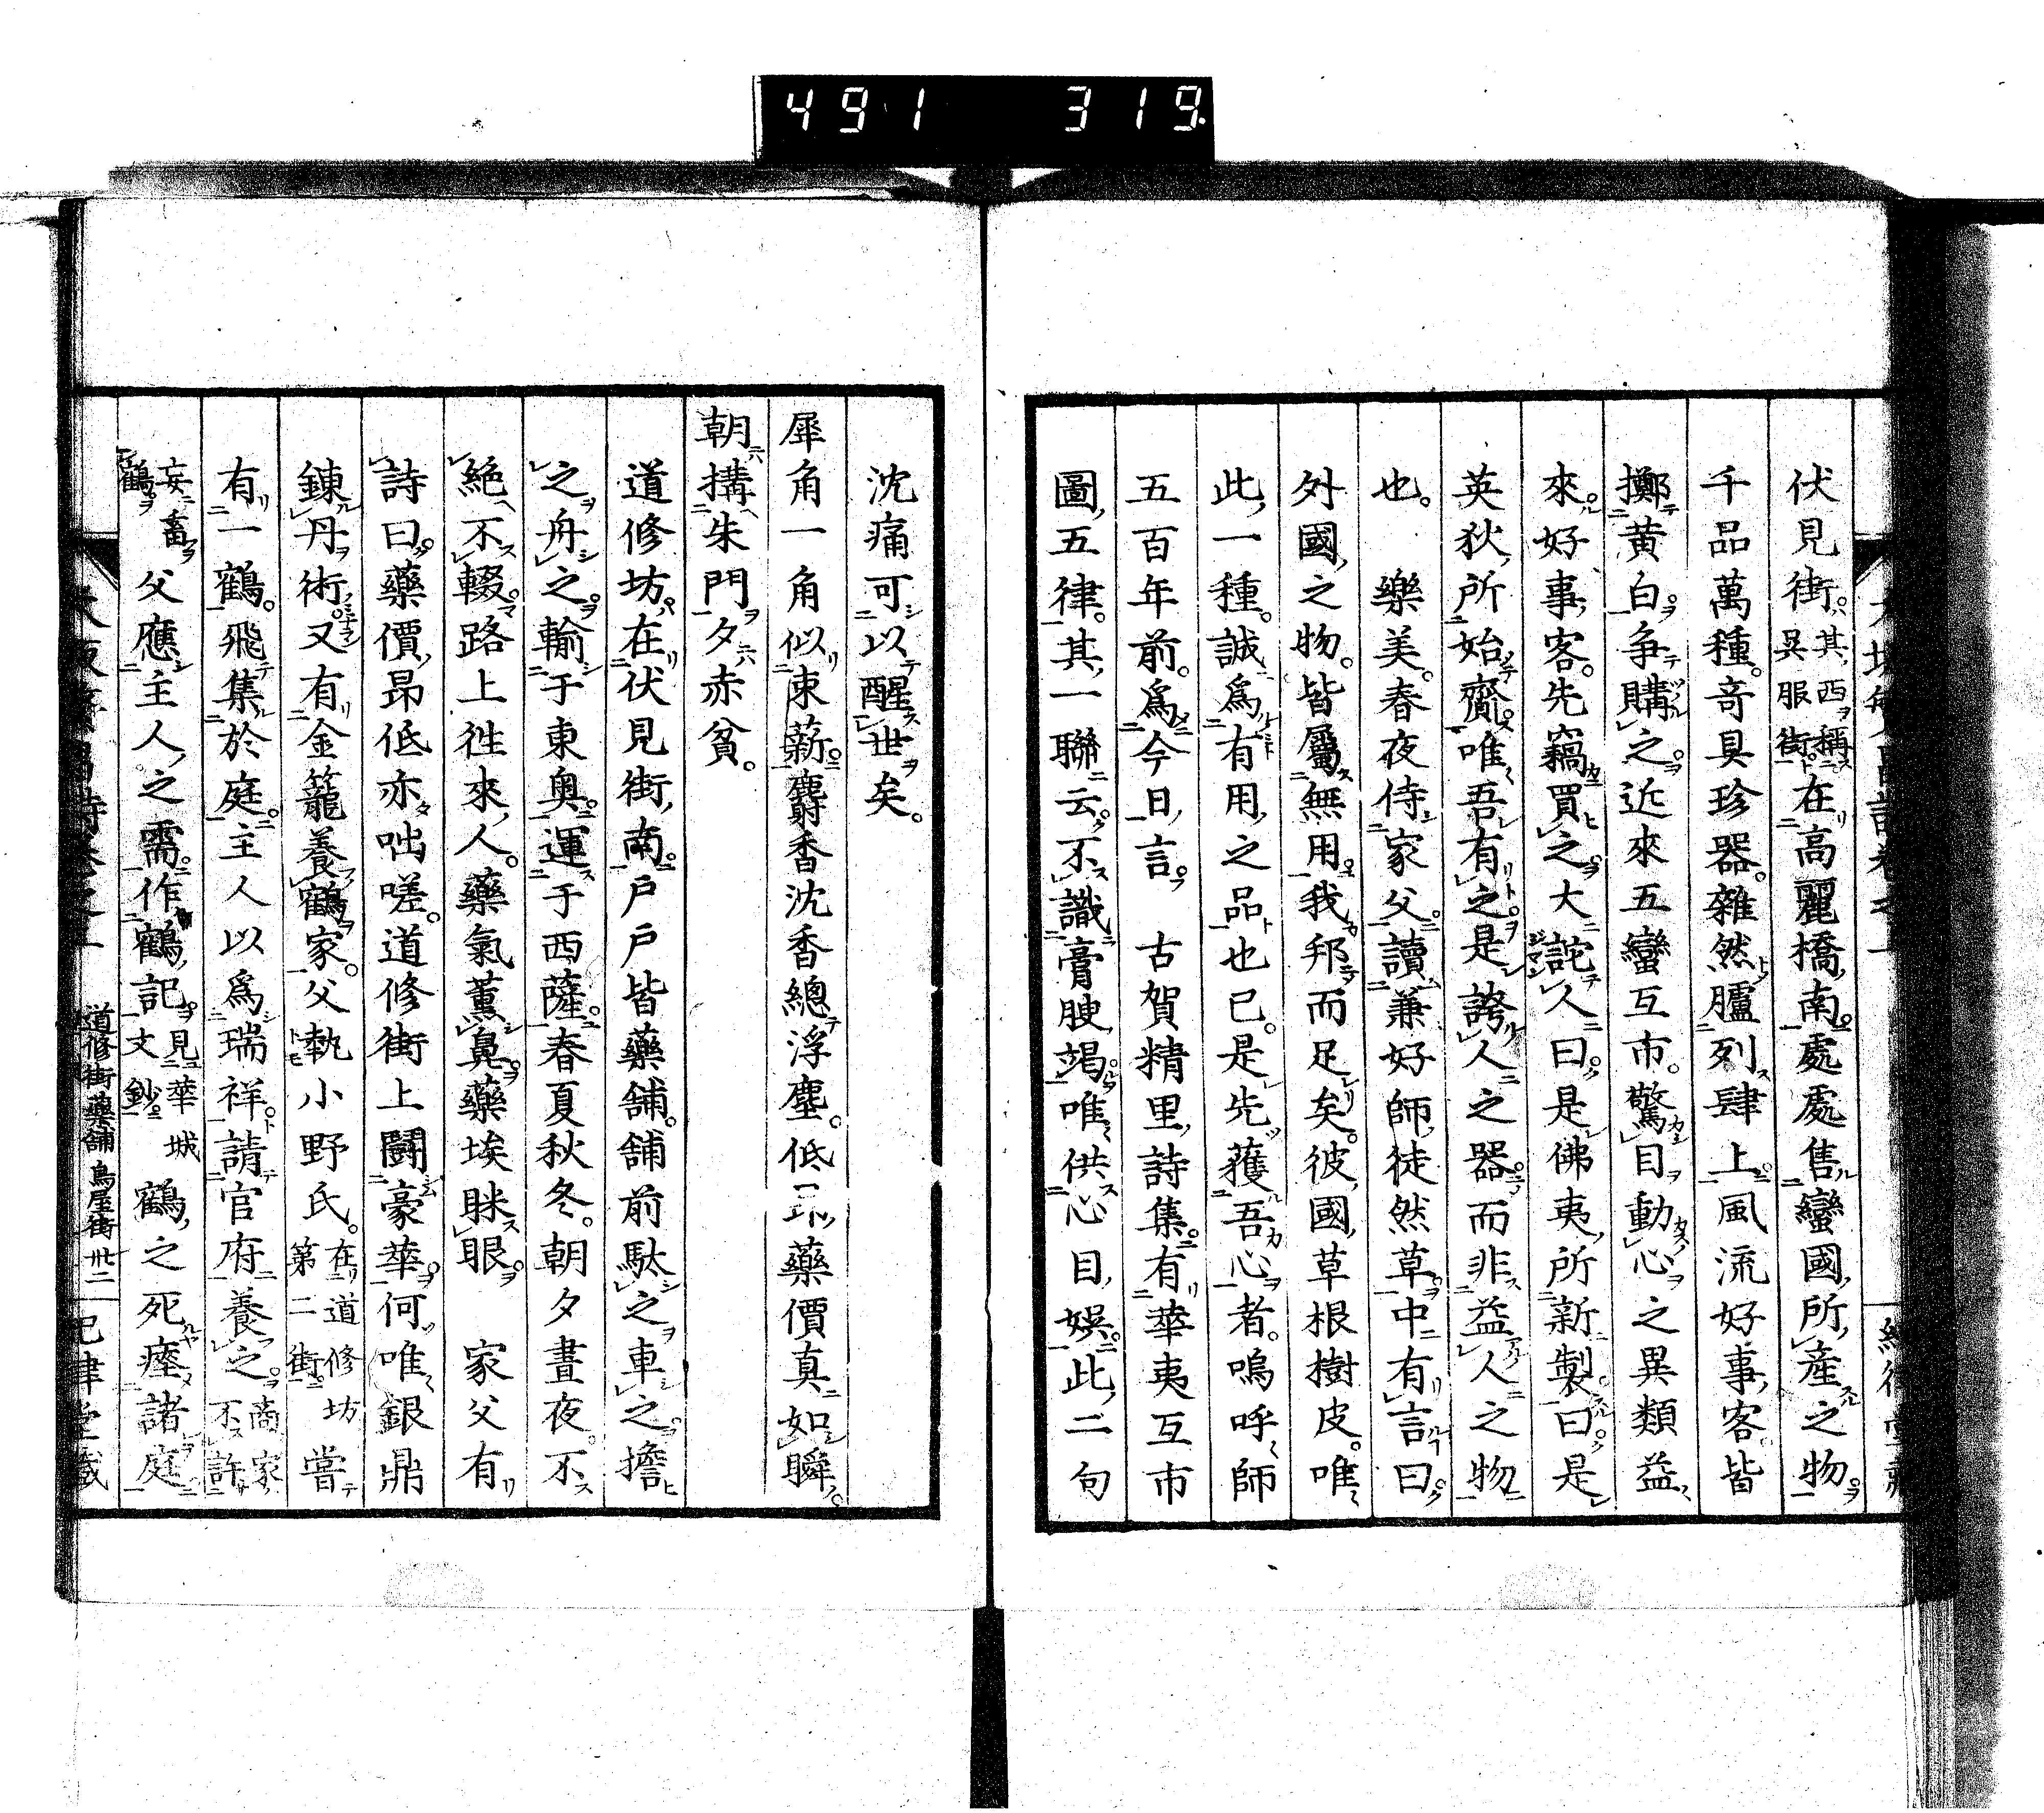 491 319
伏見街其西稱吳服街在高麗橋南處處售蠻國所產之物
千品萬種奇具珍器雜然臚列肆上風流好事客皆
擲黃白争購之近來五蠻互市驚目動心之異類益
來好事客先竊買之大詑人曰是佛夷所新製曰是
英狄所始齎唯吾有之是誇人之器而非益人之物
也　樂美春夜侍家父讀兼好師徒然草中有言曰
外國之物皆屬無用我邦而足矣彼國草根樹皮唯
此一種誠爲有用之品也已是先獲吾心者嗚呼師
五百年前爲今日言　古賀精里詩集有華夷互市
圖五律其一聯云不識膏腴竭唯供心目娛此二句
沈痛可以醒世矣
犀角一角似束薪麝香沈香總浮塵低昂藥價真如瞬
朝搆朱門夕赤貧
道修坊在伏見街南戶戶皆藥舖舖前駄之車之擔
之舟之輸于東奧運于西薩春夏秋冬朝夕晝夜不
絕不輟路上徃來人藥氣薰鼻藥埃眯眼　家父有
詩曰藥價昂低亦咄嗟道修街上鬪豪華何唯銀鼎
鍊丹術又有金籠養鶴家父執小野氏在道修坊第二街嘗
有一鶴飛集於庭主人以爲瑞祥請官府養之商家不許
妄畜鶴父應主人之需作鶴記見華城文鈔鶴之死瘞諸庭
道修街藥舖　鳥屋街　卅二